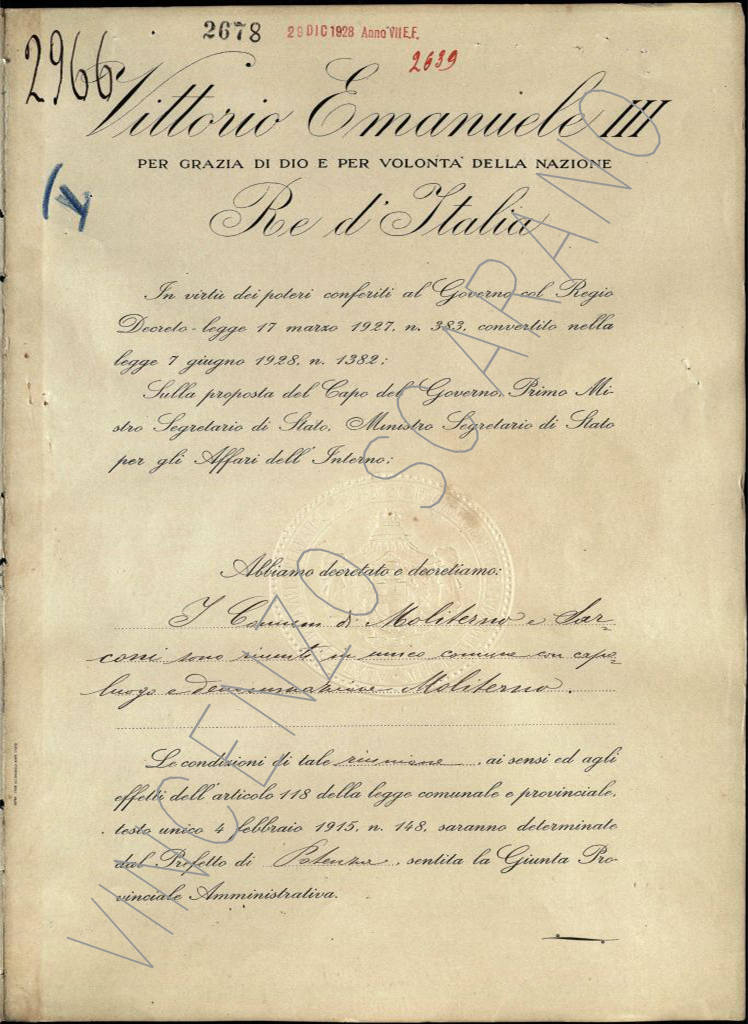 2678 29 DIC 1928 Anno VII E.F.
2966 2639
Vittorio Emanuele III
PER GRAZIA DI DIO E PER VOLONTA' DELLA NAZIONE
Re d'Italia
In virtù dei poteri conferiti al Governo col Regio
Decreto-legge 17 marzo 1927, n. 383, convertito nella
legge 7 giugno 1928, n. 1382;
Sulla proposta del Capo del Governo, Primo Mi-
stro Segretario di Stato, Ministro Segretario di Stato
per gli Affari dell'Interno;
Abbiamo decretato e decretiamo:
I Comuni di Moliterno e Sar-
coni sono riuniti in unico comune con capo-
luogo e denominazione Moliterno.
Le condizioni di tale riunione, ai sensi ed agli
effetti dell'articolo 118 della legge comunale e provinciale,
testo unico 4 febbraio 1915, n. 148, saranno determinate
dal Prefetto di Potenza, sentita la Giunta Pro-
vinciale Amministrativa.
VINCENZO SCARANO